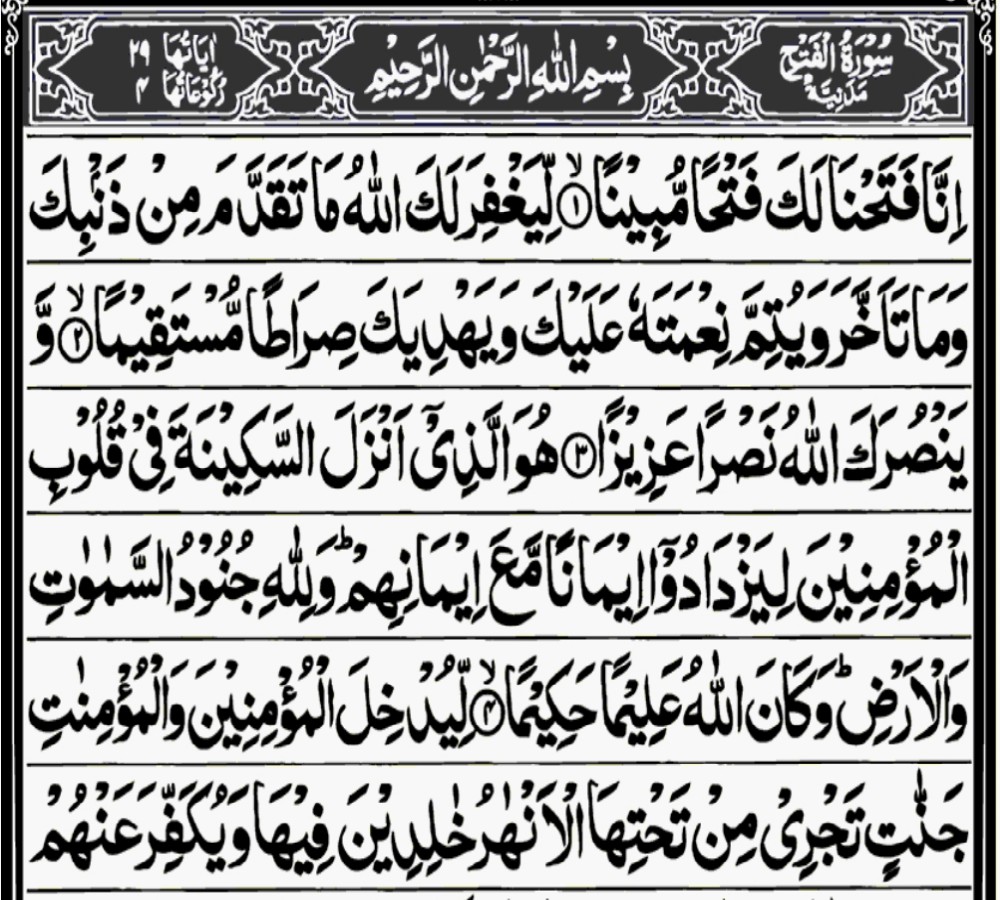 سُوۡرَةُ الۡفَتۡحِ
مَدَنِيَّةٌ
بِسۡمِ اللّٰهِ الرَّحۡمٰنِ الرَّحِيۡمِ
اٰيَاتُهَا ٢٩
رُكُوۡعَاتُهَا ٤
اِنَّا فَتَحۡنَا لَكَ فَتۡحًا مُّبِيۡنًا ۙ﴿١﴾ لِّيَغۡفِرَ لَكَ اللّٰهُ مَا تَقَدَّمَ مِنۡ ذَنۡۢبِكَ
وَمَا تَاَخَّرَ وَيُتِمَّ نِعۡمَتَهٗ عَلَيۡكَ وَيَهۡدِيَكَ صِرَاطًا مُّسۡتَقِيۡمًا ۙ﴿٢﴾ وَّ
يَنۡصُرَكَ اللّٰهُ نَصۡرًا عَزِيۡزًا ﴿٣﴾ هُوَ الَّذِىۡۤ اَنۡزَلَ السَّكِيۡنَةَ فِىۡ قُلُوۡبِ
الۡمُؤۡمِنِيۡنَ لِيَزۡدَادُوۡۤا اِيۡمَانًا مَّعَ اِيۡمَانِهِمۡ ؕ وَلِلّٰهِ جُنُوۡدُ السَّمٰوٰتِ
وَالۡاَرۡضِ ؕ وَكَانَ اللّٰهُ عَلِيۡمًا حَكِيۡمًا ۙ﴿٤﴾ لِّيُدۡخِلَ الۡمُؤۡمِنِيۡنَ وَالۡمُؤۡمِنٰتِ
جَنّٰتٍ تَجۡرِىۡ مِنۡ تَحۡتِهَا الۡاَنۡهٰرُ خٰلِدِيۡنَ فِيۡهَا وَيُكَفِّرَ عَنۡهُمۡ